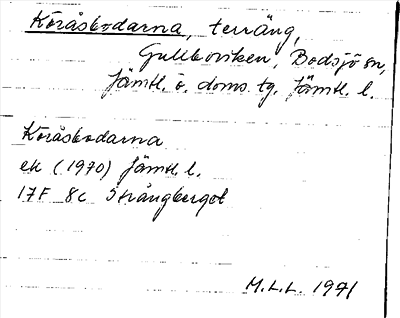 Köråsbodarna, terräng,
Gulboviken, Bodsjö sn,
Jämtl. ö. doms. tg. Jämtl. l.
Köråsbodarna
ek (1970) Jämtl. l.
17F 8c Strångberget
M.L.L. 1971